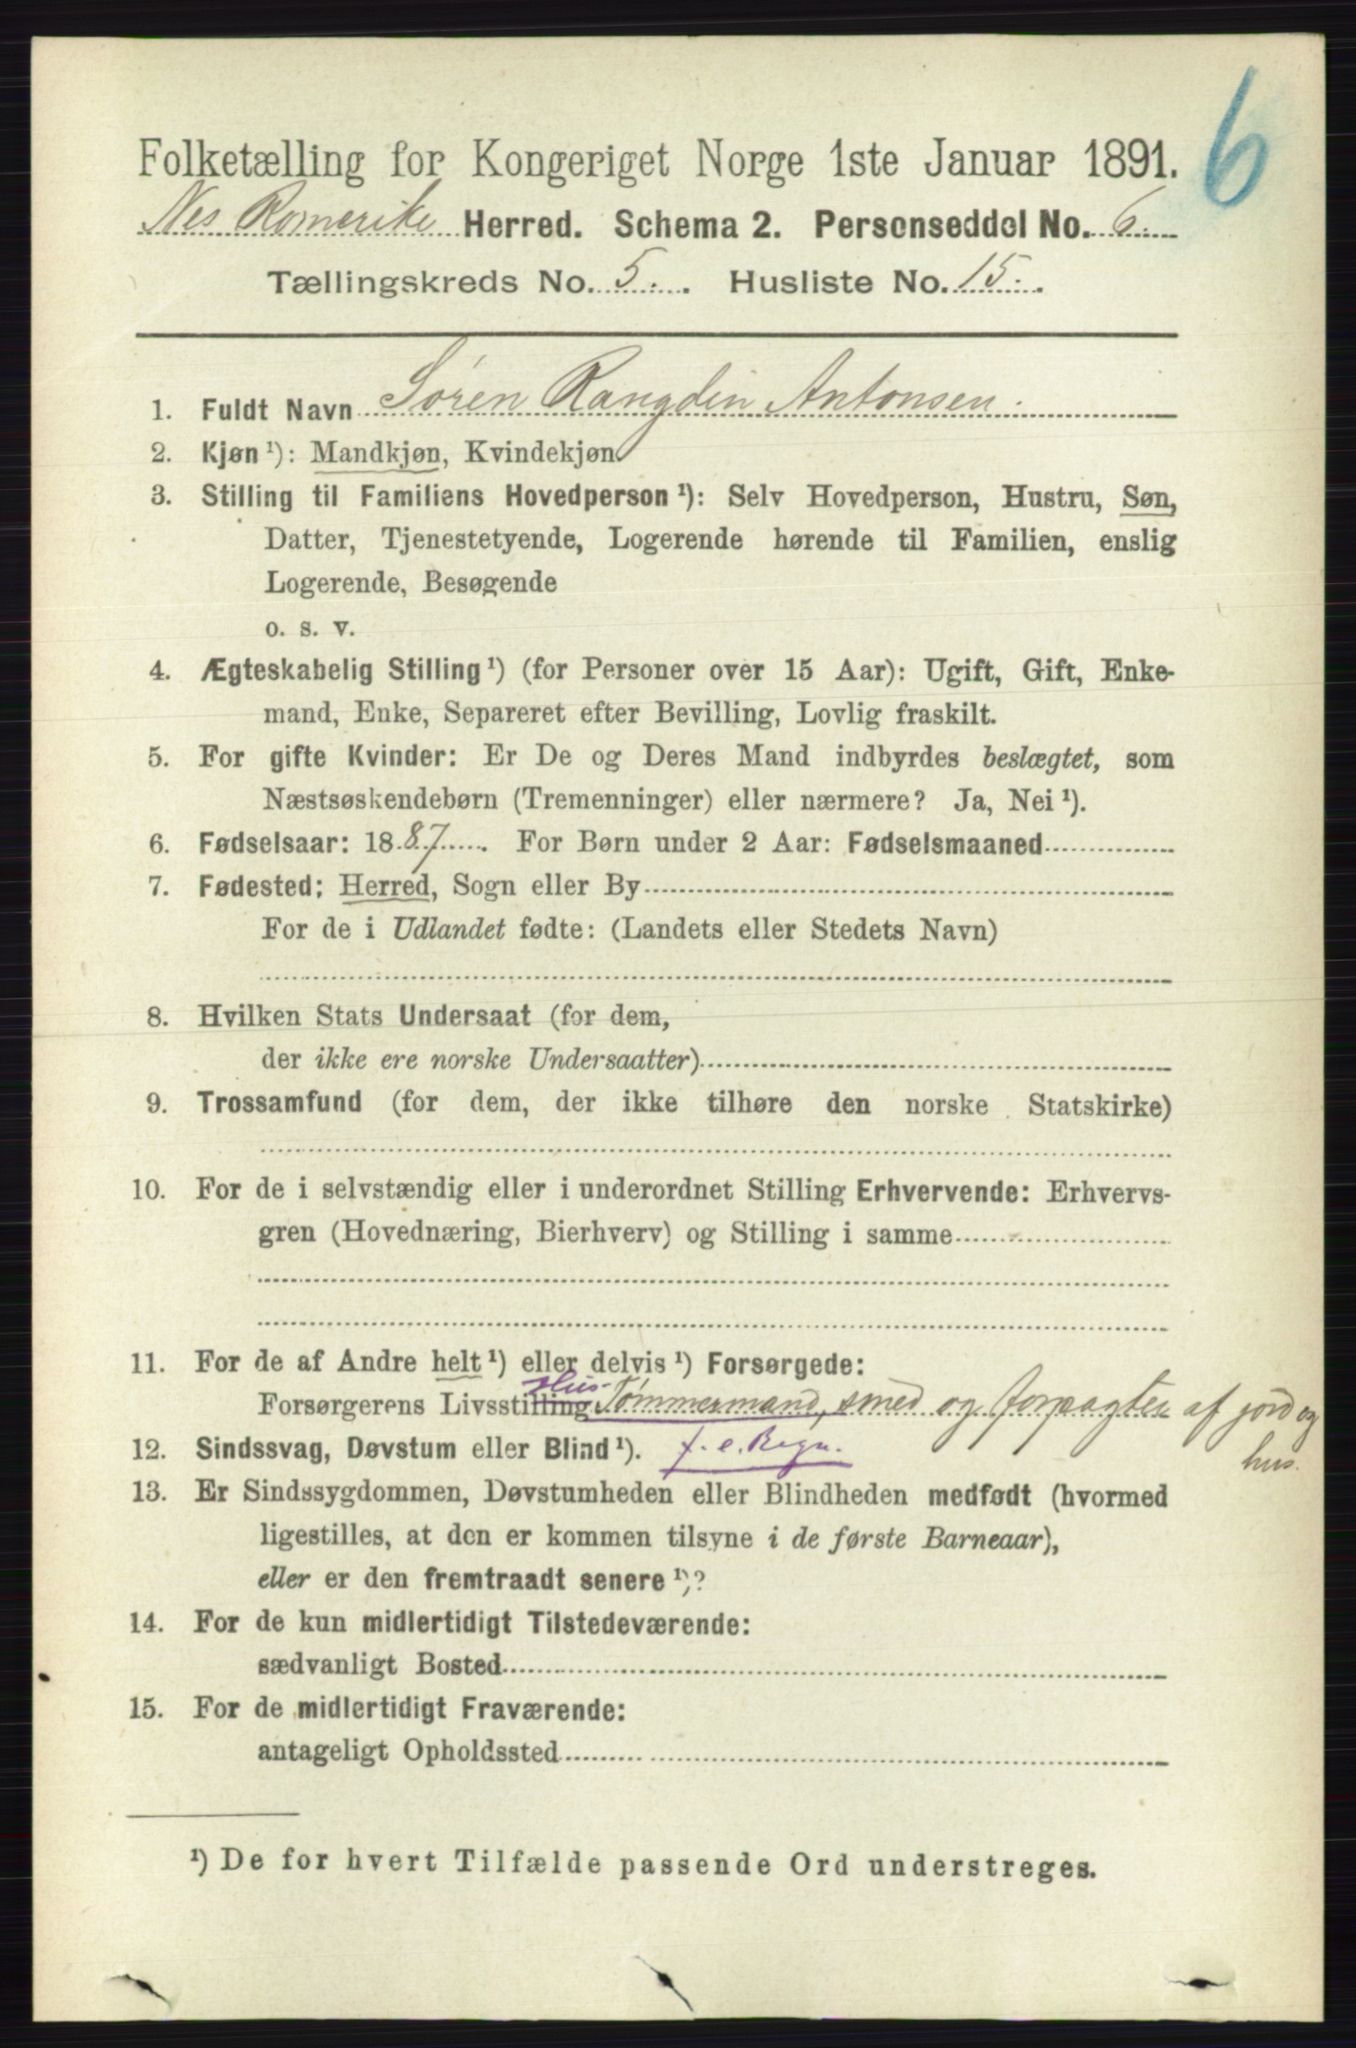 6
Folketælling for Kongeriget Norge 1ste Januar 1891.
Nes Romerike Herred. Schema 2. Personseddel No. 6.
Tællingskreds No. 5. Husliste No. 15.
1. Fuldt Navn Søren Rangdin Antonsen.
2. Kjøn ¹): Mandkjøn, Kvindekjøn
3. Stilling til Familiens Hovedperson ¹): Selv Hovedperson, Hustru, Søn,
Datter, Tjenestetyende, Logerende hørende til Familien, enslig
Logerende, Besøgende
o. s. v.
4. Ægteskabelig Stilling ¹) (for Personer over 15 Aar): Ugift, Gift, Enke-
mand, Enke, Separeret efter Bevilling, Lovlig fraskilt.
5. For gifte Kvinder: Er De og Deres Mand indbyrdes beslægtet, som
Næstsøskendebørn (Tremenninger) eller nærmere? Ja, Nei ¹).
6. Fødselsaar: 1887. For Børn under 2 Aar: Fødselsmaaned
7. Fødested: Herred, Sogn eller By
For de i Udlandet fødte: (Landets eller Stedets Navn)
8. Hvilken Stats Undersaat (for dem,
der ikke ere norske Undersaatter)
9. Trossamfund (for dem, der ikke tilhøre den norske Statskirke)
10. For de i selvstændig eller i underordnet Stilling Erhvervende: Erhvervs-
gren (Hovednæring, Bierhverv) og Stilling i samme
11. For de af Andre helt ¹) eller delvis ¹) Forsørgede:
Hus-
Forsørgerens Livsstilling Tømmermand, smed og forpagter af jord og
hus.
12. Sindssvag, Døvstum eller Blind ¹). f. e. Regn.
13. Er Sindssygdommen, Døvstumheden eller Blindheden medfødt (hvormed
ligestilles, at den er kommen tilsyne i de første Barneaar),
eller er den fremtraadt senere ¹)?
14. For de kun midlertidigt Tilstedeværende:
sædvanligt Bosted
15. For de midlertidigt Fraværende:
antageligt Opholdssted
¹) De for hvert Tilfælde passende Ord understreges.